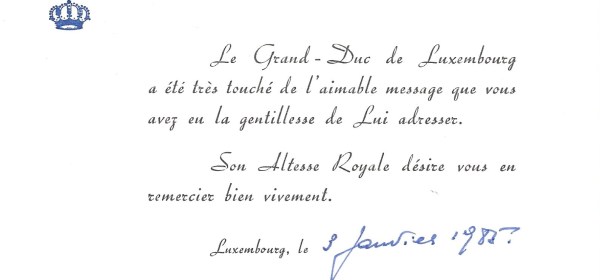 Le Grand-Duc de Luxembourg
a été très touché de l'aimable message que vous
avez eu la gentillesse de Lui adresser.
Son Altesse Royale désire vous en
remercier bien vivement.
Luxembourg, le 3 janvier 1985.